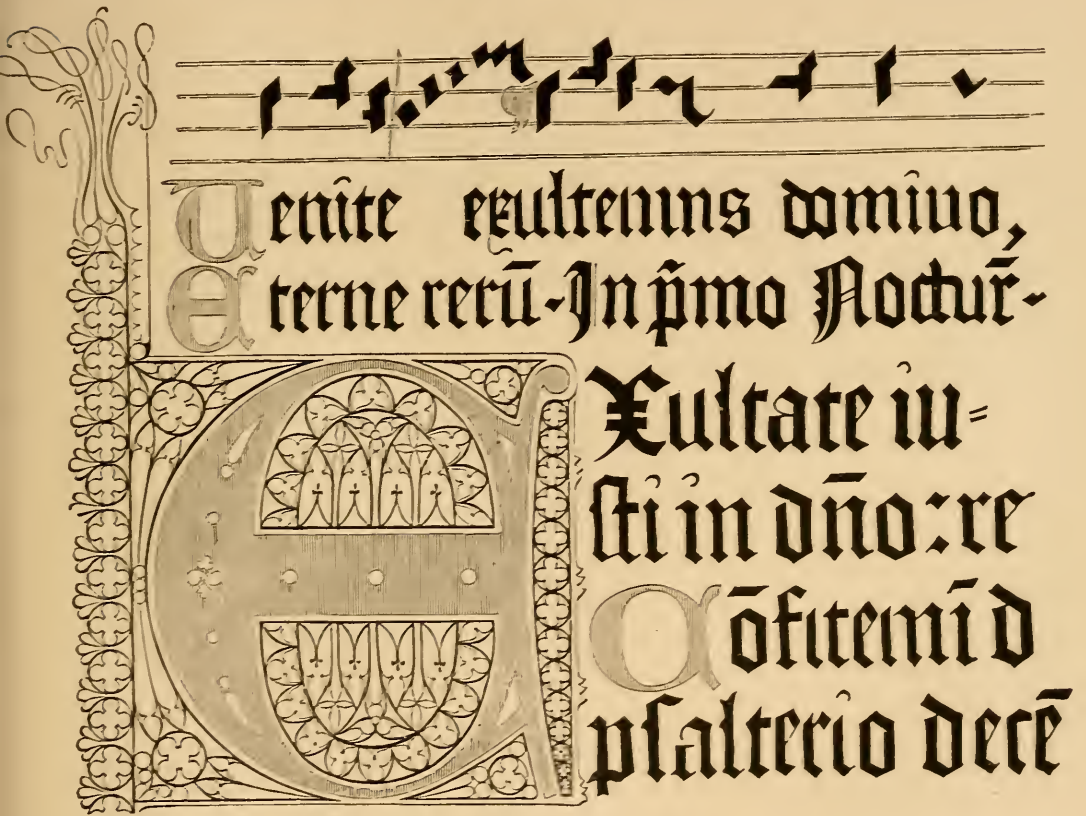 Venite exultemus domino,
Eterne rerū. In p̄mo Noctur̄.
EXultate iu=
sti in dn̄o: re
Cōfitemī d
psalterio decē